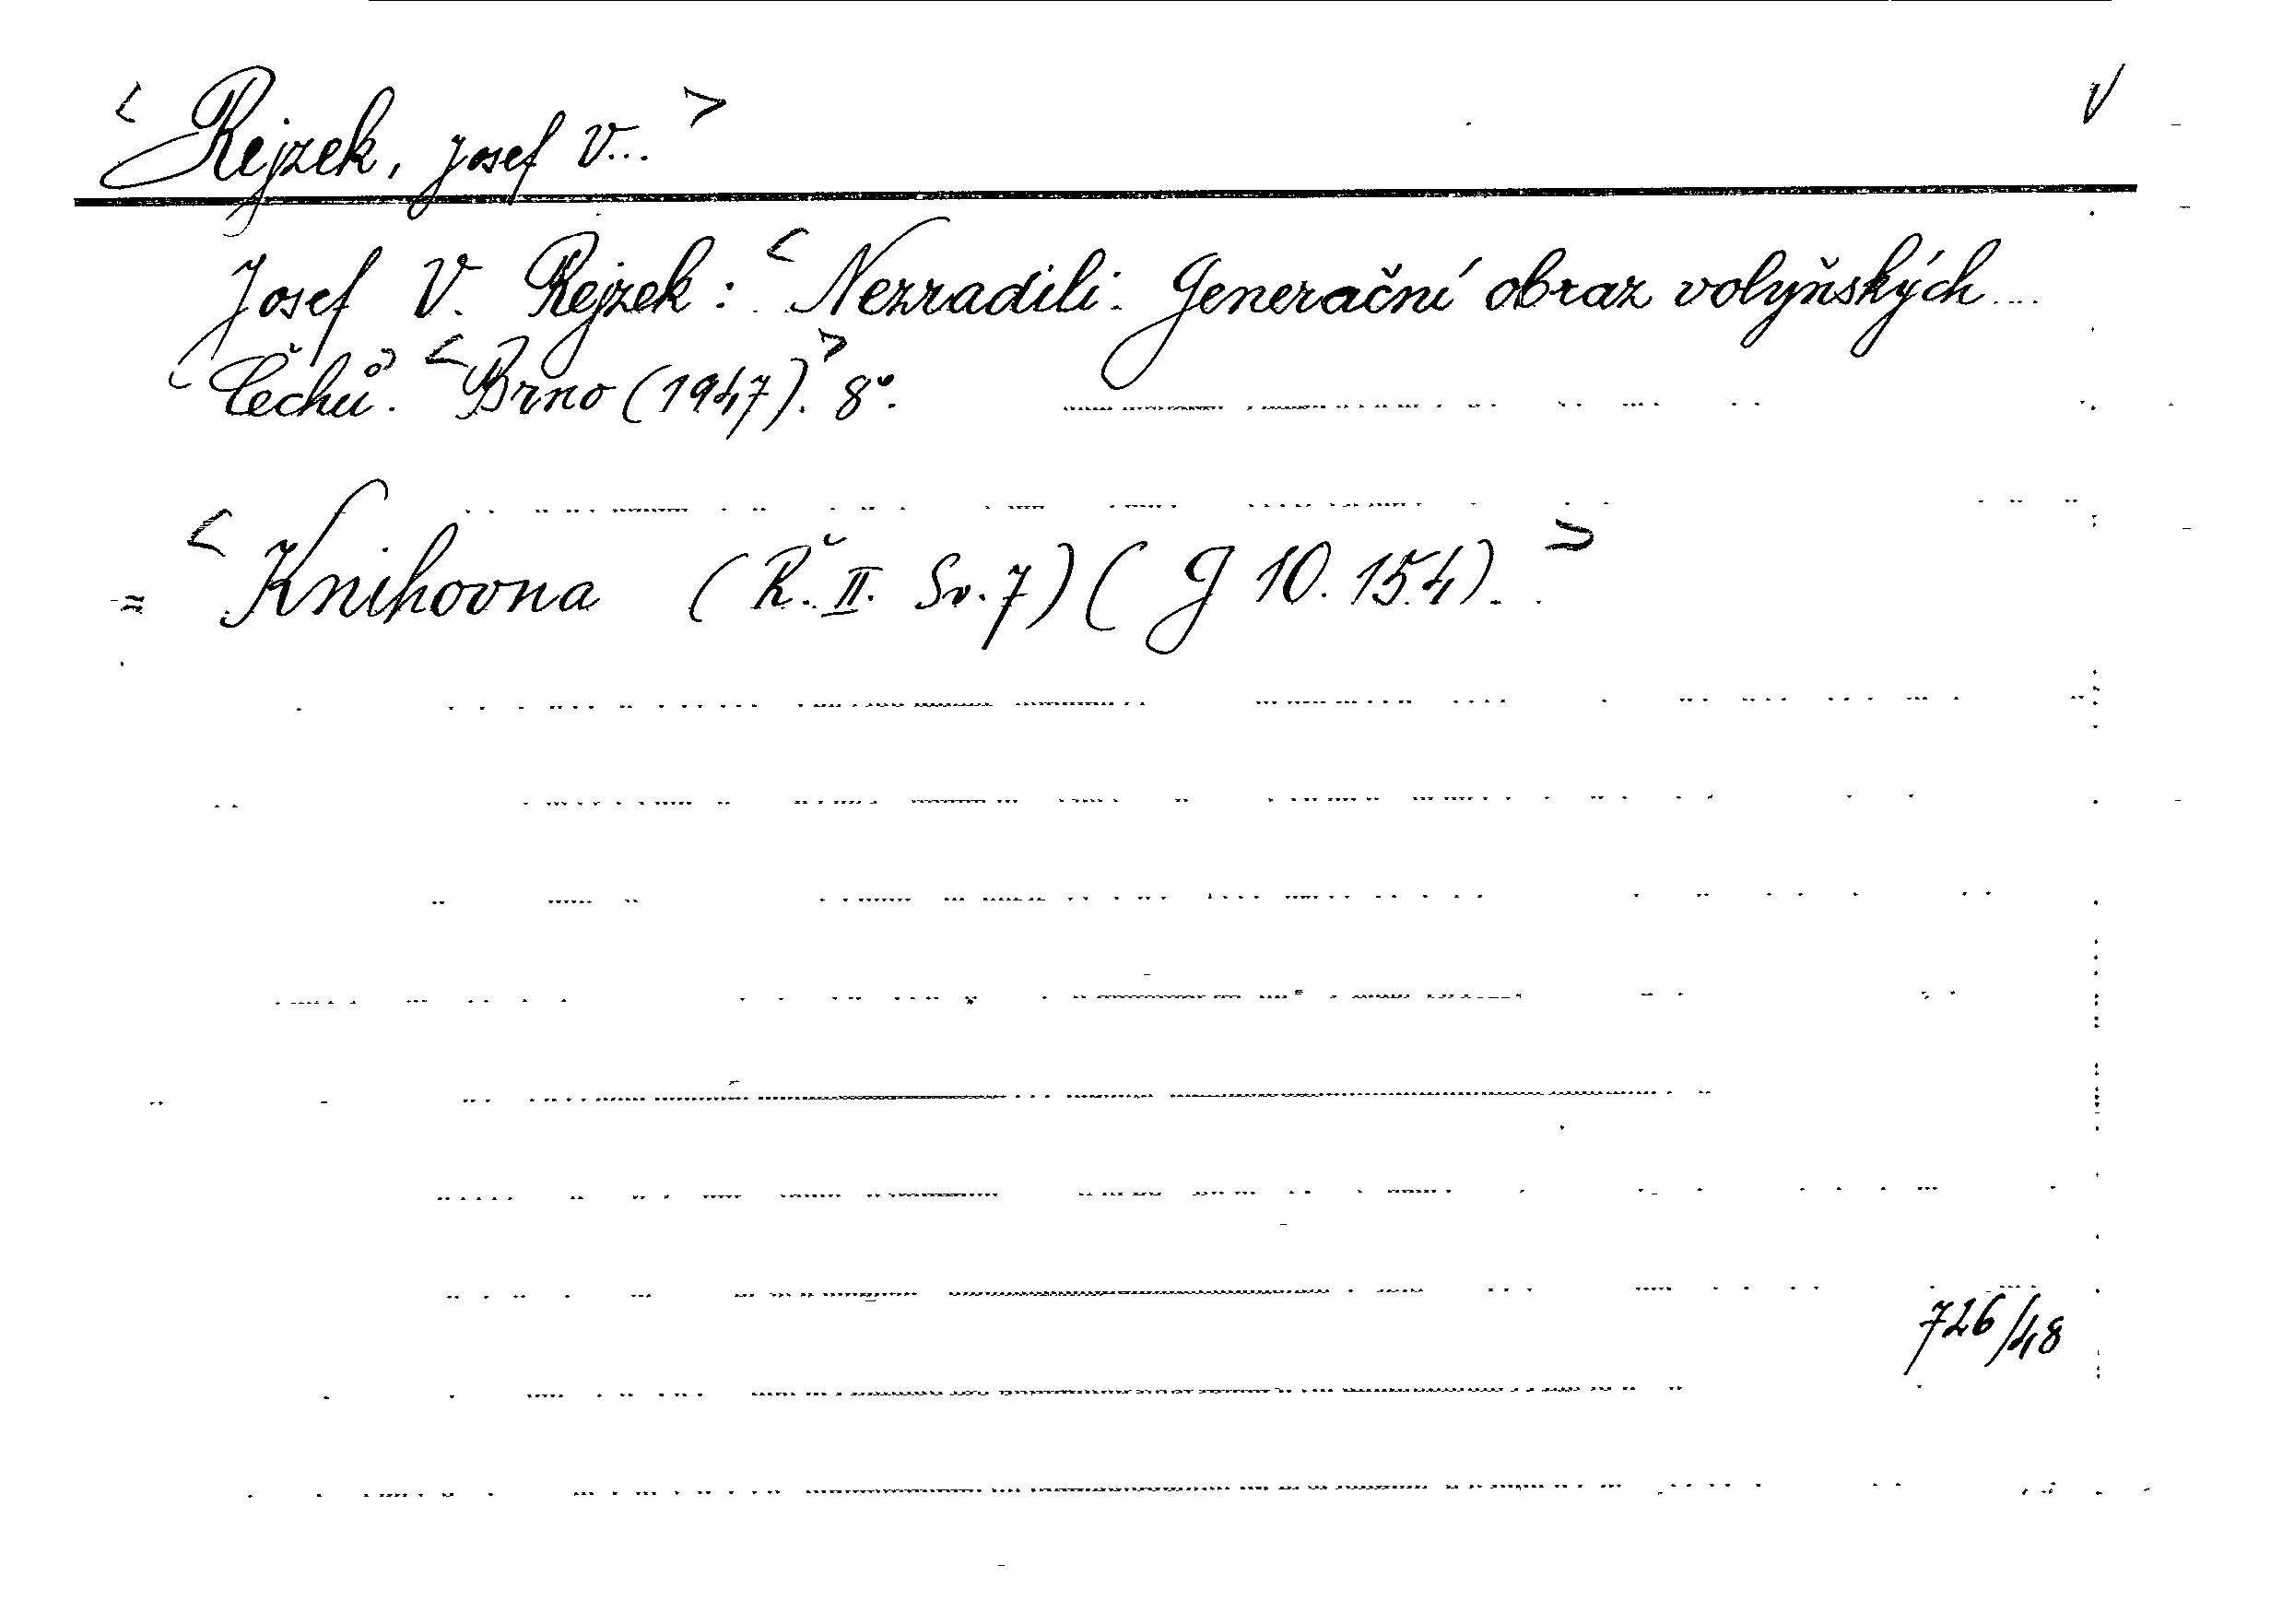 < Rejzek, Josef V... > V
Josef V. Rejzek: < Nezradili. Generační obraz volyňských
Čechů. < Brno (1947). > 8°.
= < Knihovna (Ř. II. Sv. 7) ( J 10.154). >
726/48